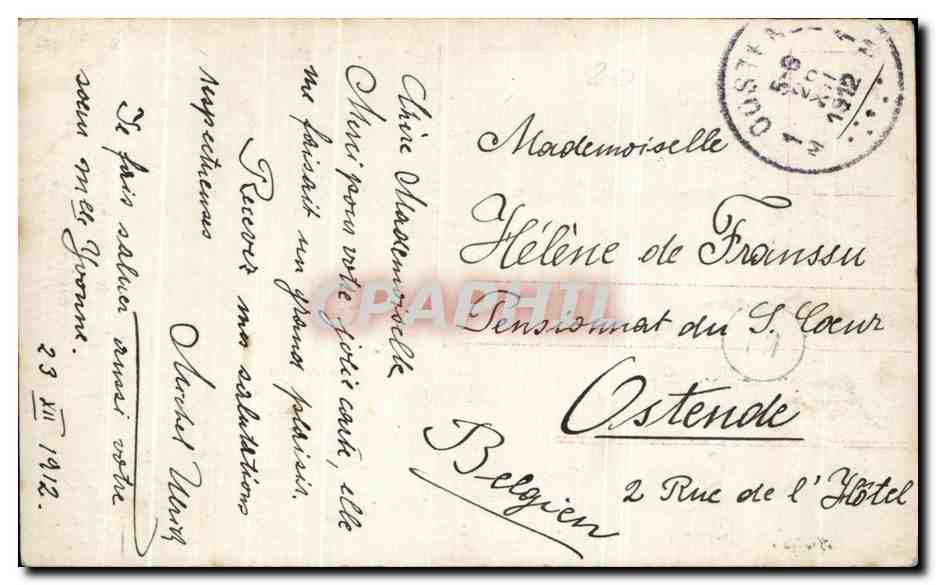 Chère Mademoiselle
Merci pour votre jolie carte, elle
me faisait un grand plaisir.
Recevez mes salutations
respectueuses
Michel Ulrich
Je fais saluer aussi votre
soeur Mlle Yvonne.
23 XII 1912.
Mademoiselle
Hélène de Franssu
Pensionnat du S. Coeur
Ostende
2 Rue de l'Hôtel
Belgien
5-6
XII
1912
CPAPHIL